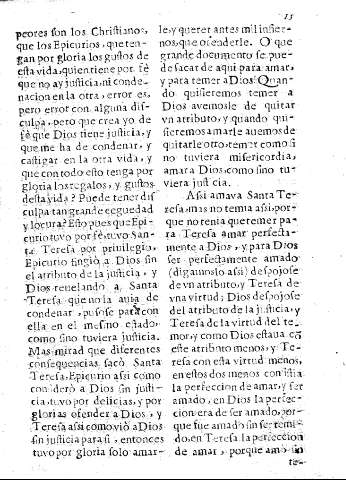 13
peores son los Christianos,
que los Epicurios, que ten-
gan por gloria los gustos de
esta vida, quien tiene por fè
que no ay justicia, ni conde-
nacion en la otra, error es,
pero error con alguna dis-
culpa, pero que crea yo de
fè que Dios tiene justicia, y
que me ha de condenar, y
castigar en la otra vida, y
que con todo esto tenga por
gloria los regalos, y gustos
desta vida? Puede tener dis
culpa tan grande ceguedad
y locura? Esto pues que Epi-
curio tuvo por fè, tuvo San-
ta Teresa por privilegio,
Epicurio fingiò à Dios sin
el atributo de la justicia, y
Dios revelando à Santa
Teresa que no la avia de
condenar, pusose para con
ella en el mesmo estado,
como sino tuviera justicia.
Mas mirad que diferentes
consequencias sacò Santa
Teresa, Epicurio assi como
considerò à Dios sin justi-
cia, tuvo por delicias, y por
glorias ofender a Dios, y
Teresa assi como viò à Dios
sin justicia para si, entonces
tuvo por gloria solo amar-
le, y querer antes mil infier-
nos, que ofenderle. O que
grande documento se pue-
de sacar de aqui para amar,
y para temer a Dios! Quan-
do quisieremos temer a
Dios avemosle de quitar
vn atributo, y quando qui-
sieremos amarle auemos de
quitarle otro, temer como si
no tuviera misericordia,
amar a Dios, como sino tu-
viera justicia.
Assi amava Santa Te-
resa, mas no temia assi, por-
que no tenia que temer pa-
ra Teresa amar perfecta-
mente a Dios, y para Dios
ser perfectamente amado
(digamoslo assi) despojose
de vn atributo, y Teresa de
vna virtud; Dios despojose
del atributo de la justicia, y
Teresa de la virtud del te-
mor, y como Dios estaua cõ
este atributo menos, y Te-
resa con esta virtud menos,
en estos dos menos consistia
la perfeccion de amar, y ser
amado, en Dios la perfec-
cion era de ser amado, por-
que fue amado sin ser temi-
do, en Teresa la perfeccion
de amar, porque amò sin
te-